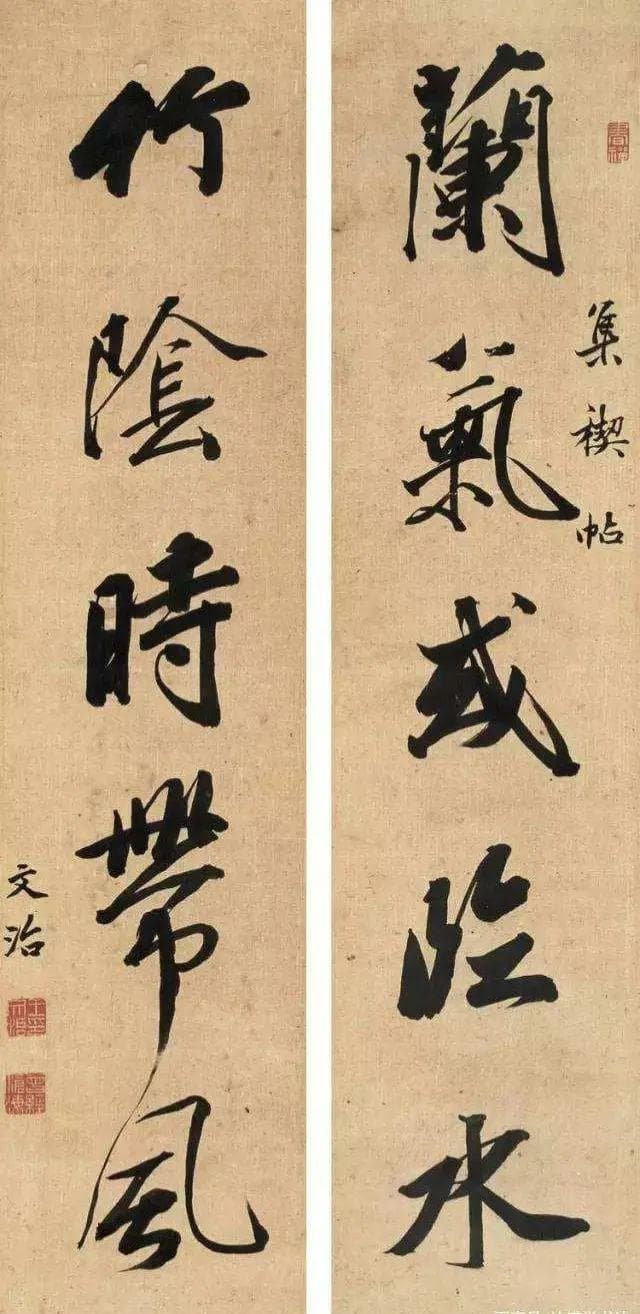 集禊帖
蘭氣或临水
竹陰時帶風
文治